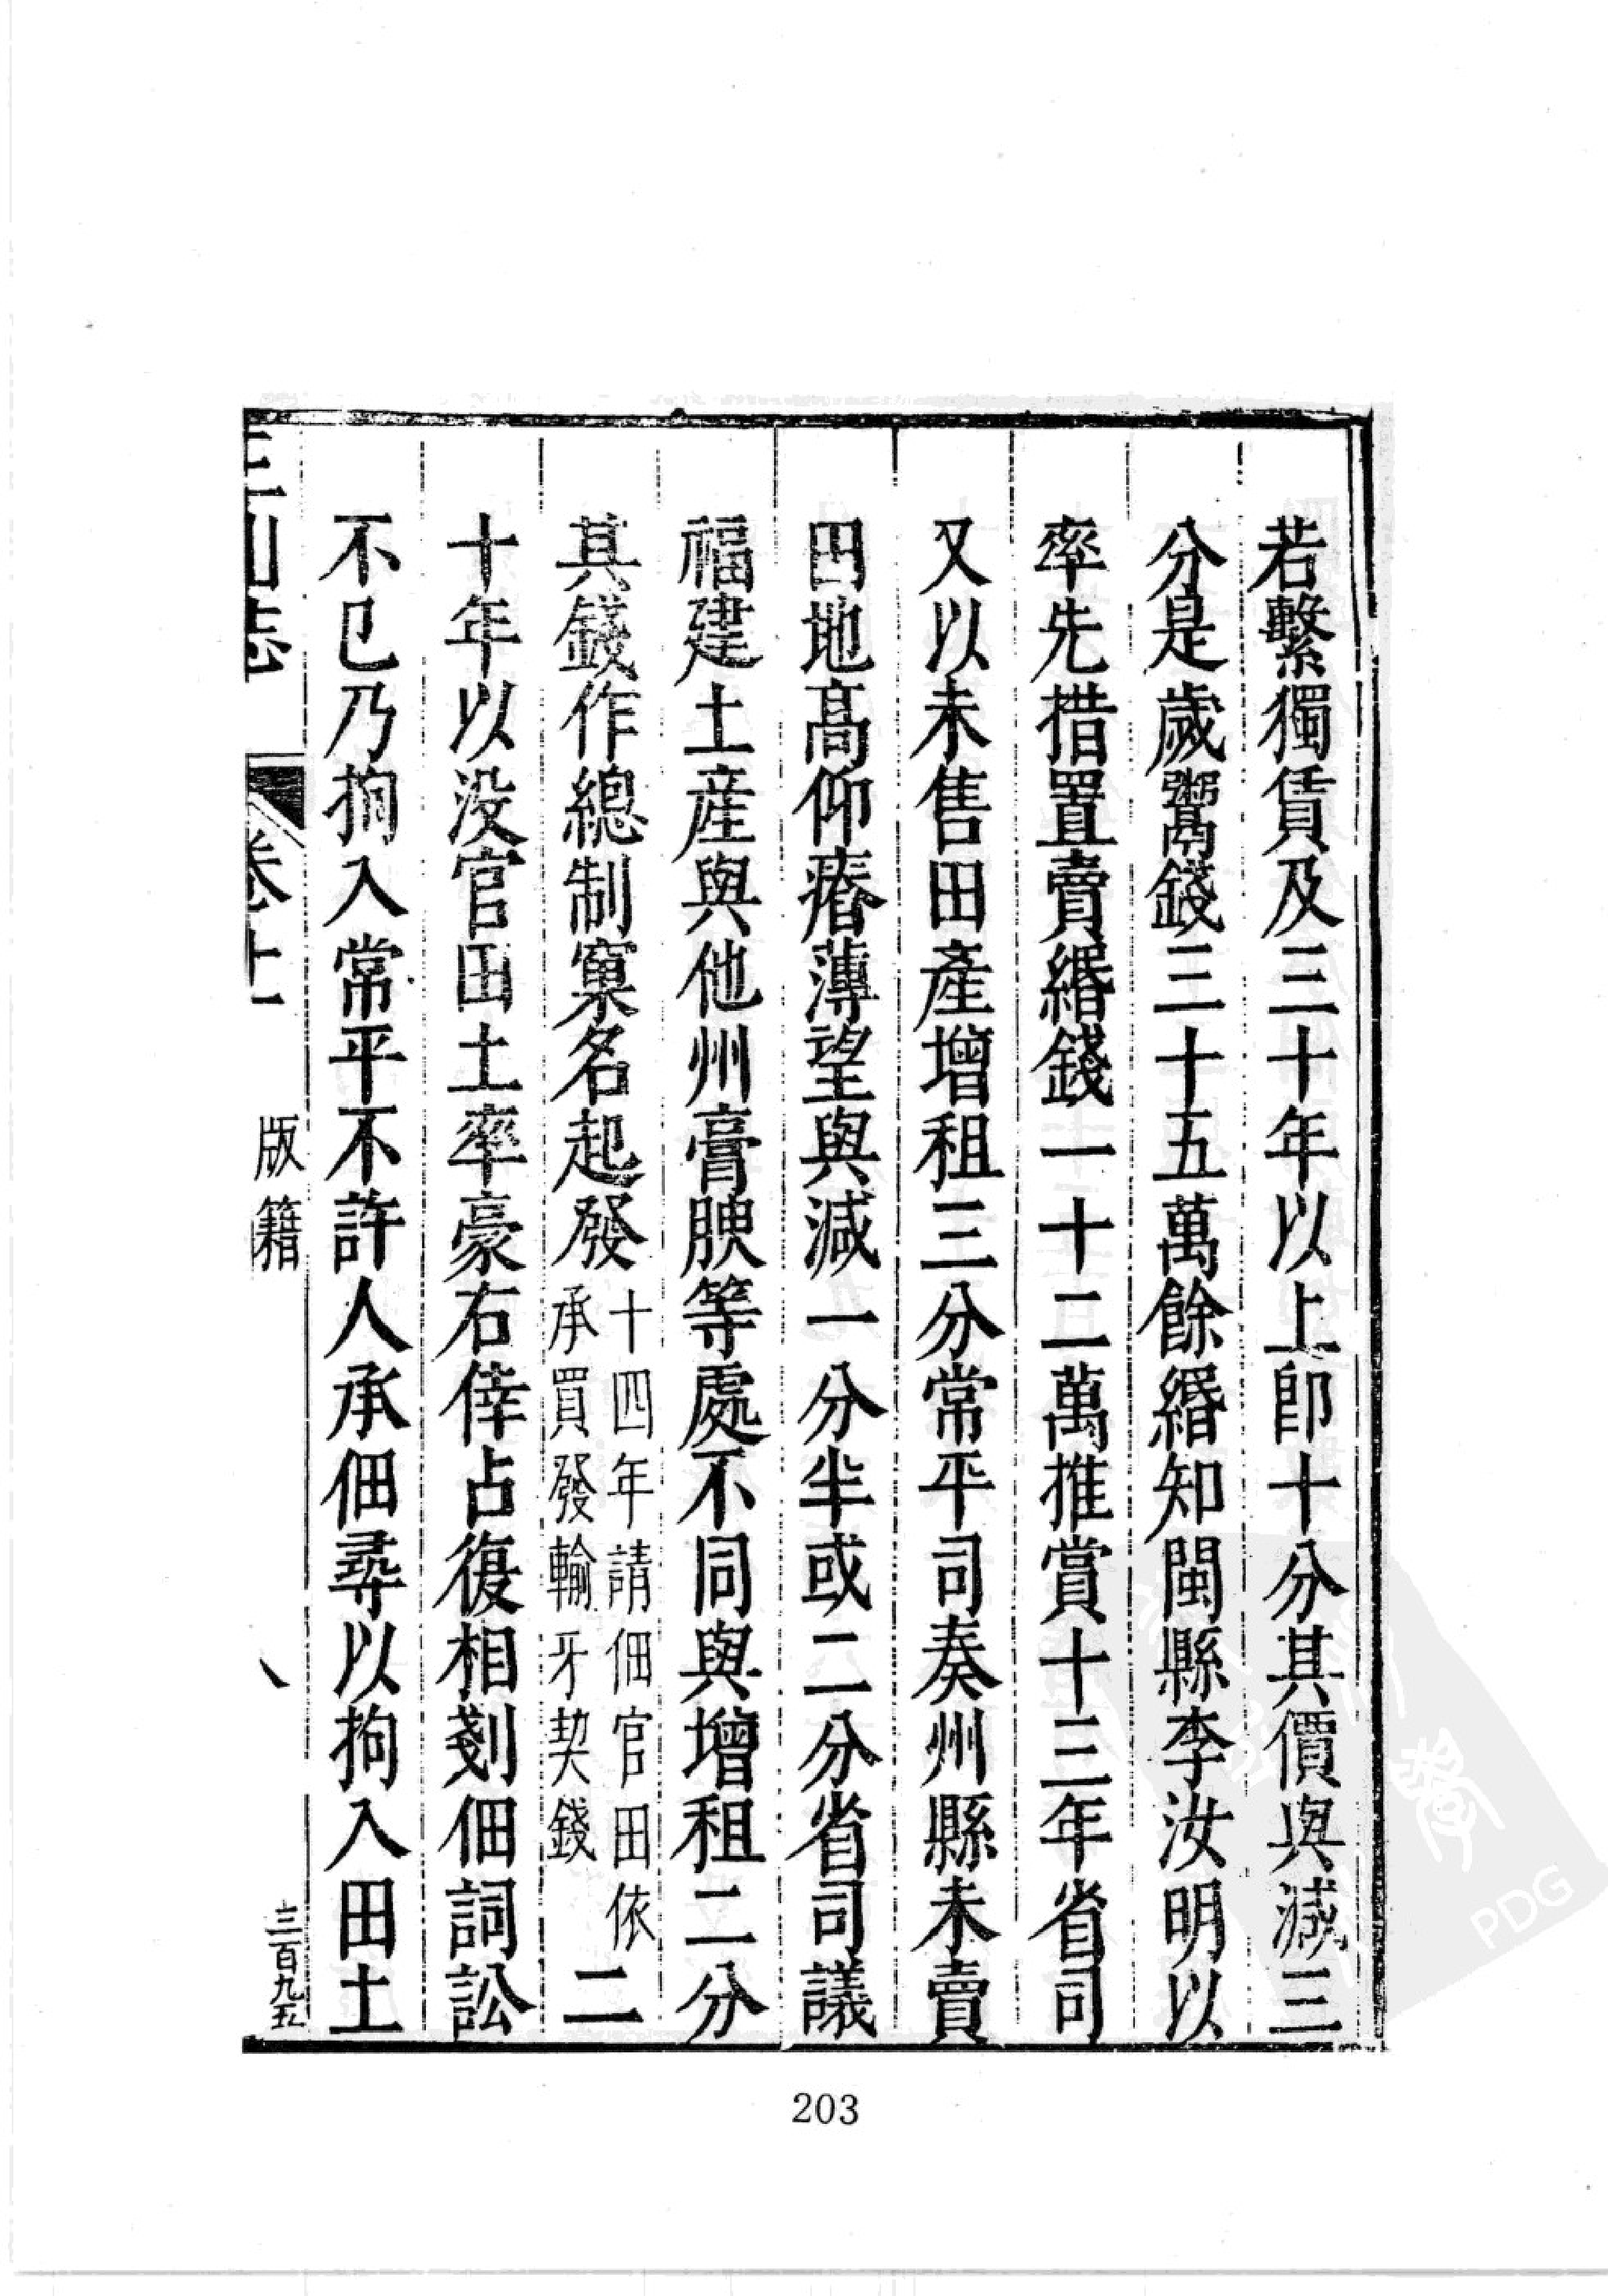 若繫獨賃及三十年以上卽十分其價與減三
分是歲鬻錢三十五萬餘緡知閩縣李汝明以
率先措置賣緡錢一十二萬推賞十三年省司
又以未售田產增租三分常平司奏州縣未賣
田地高仰瘠薄望與減一分半或二分省司議
福建土產與他州膏腴等處不同與增租二分
其錢作總制窠名起發十四年請佃官田依承買發輸牙契錢二
十年以沒官田土率豪右倖占復相剗佃詞訟
不已乃拘入常平不許人承佃尋以拘入田土
三山志 卷十一 版籍 八 三百九五
203
PDG